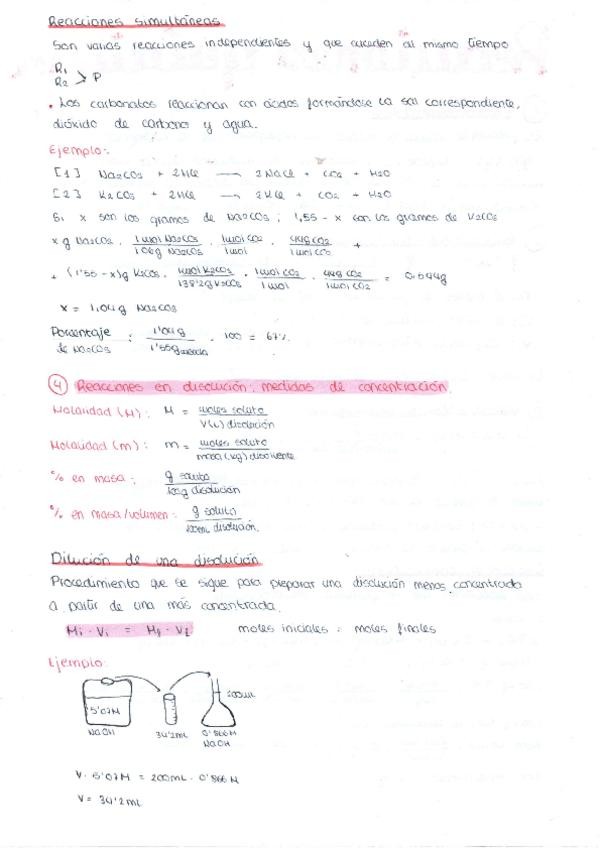 Reacciones simultáneas
Son varias reacciones independientes y que suceden al mismo tiempo
R1
R2 > P
• Los carbonatos reaccionan con ácidos formándose la sal correspondiente,
dióxido de carbono y agua.
Ejemplo:
[1] Na2CO3 + 2HCl → 2NaCl + CO2 + H2O
[2] K2CO3 + 2HCl → 2KCl + CO2 + H2O
Si x son los gramos de Na2CO3 ; 1,55 - x son los gramos de K2CO3
x g Na2CO3 · 1 mol Na2CO3 / 106g Na2CO3 · 1 mol CO2 / 1 mol · 44g CO2 / 1 mol CO2 +
+ (1'55 - x)g K2CO3 · 1 mol K2CO3 / 138'2g K2CO3 · 1 mol CO2 / 1 mol · 44g CO2 / 1 mol CO2 = 0.594g
x = 1,04g Na2CO3
Porcentaje de Na2CO3 : 1'04g / 1'55g mezcla · 100 = 67%
4 Reacciones en disolución: medidas de concentración
Molaridad (M): M = moles soluto / V(L) disolución
Molalidad (m): m = moles soluto / masa (kg) disolvente
% en masa : g soluto / 100g disolución
% en masa/volumen: g soluto / 100mL disolución.
Dilución de una disolución
Procedimiento que se sigue para preparar una disolución menos concentrada
a partir de una más concentrada.
Mi · Vi = Mf · Vf moles iniciales = moles finales
Ejemplo:
200mL
5'07M
NaOH 34'2mL 0'866M
NaOH
V · 5'07M = 200mL · 0'866 M
V = 34'2 mL